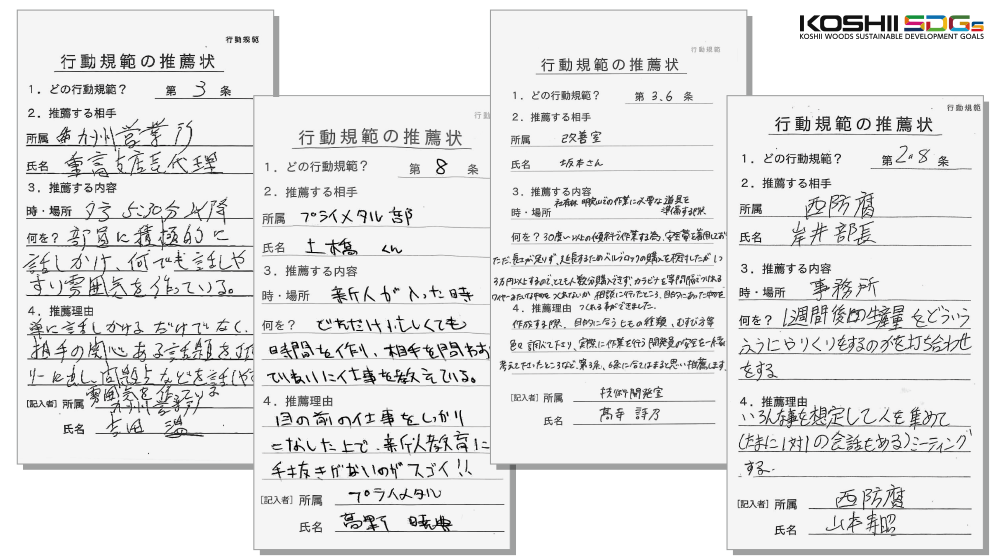 KOSHII SDGs
KOSHII WOODS SUSTAINABLE DEVELOPMENT GOALS
行動規範
行動規範の推薦状
1．どの行動規範？ 第 3 条
2．推薦する相手
所属 九州営業所
氏名 重高支店長代理
3．推薦する内容
時・場所 夕方 5:30分以降
何を？ 部員に積極的に
話しかけ、何でも話しや
すい雰囲気を作っている。
4．推薦理由
単に話しかけるだけでなく、
相手の関心ある話題を
リーに出し、問題点などを話しやす
雰囲気を作っている
[記入者] 所属 九州営業所
氏名 吉田
行動規範の推薦状
1．どの行動規範？ 第 8 条
2．推薦する相手
所属 プライメタル部
氏名 土橋 くん
3．推薦する内容
時・場所 新人が入った時
何を？ どれだけ忙しくても
時間を作り、相手を問わず
ていねいに仕事を教えている。
4．推薦理由
目の前の仕事をしっかり
こなした上で、新人教育に
手抜きがないのがスゴイ!!
[記入者] 所属 プライメタル
氏名 高野
行動規範
行動規範の推薦状
1．どの行動規範？ 第 3.6 条
2．推薦する相手
所属 改善室
氏名 坂本さん
3．推薦する内容
時・場所 での作業に必要な道具を
準備する際
何を？ 30度以上の傾斜で作業する為、安全帯を着用してお
ただ、長さが足りず、延長するためにパルブロックの購入を検討したが1つ
3万円以上するので、とても人数分購入できず、カラビナを専門店でつける
相談に行ったところ、目的にあった物を
4．推薦理由 つくる事ができました。
作成する際、目的に合うヒモの種類、むすび方等
色々調べて下さり、実際に作業を行う開発員が安全を一番
考えて下さったところなど、第3条、6条に合てはまると思い推薦します
[記入者] 所属 技術開発室
氏名 高寺 詩乃
行動規範
行動規範の推薦状
1．どの行動規範？ 第 2.8 条
2．推薦する相手
所属 西防腐
氏名 岸井部長
3．推薦する内容
時・場所 事務所
何を？ 1週間後の生産量をどういう
ようにやりくりをするのかを打ち合わせ
をする
4．推薦理由
いろんな事を想定して人を集めて
(たまに1対1の会話もある)ミーティング
する.
[記入者] 所属 西防腐
氏名 山本寿昭